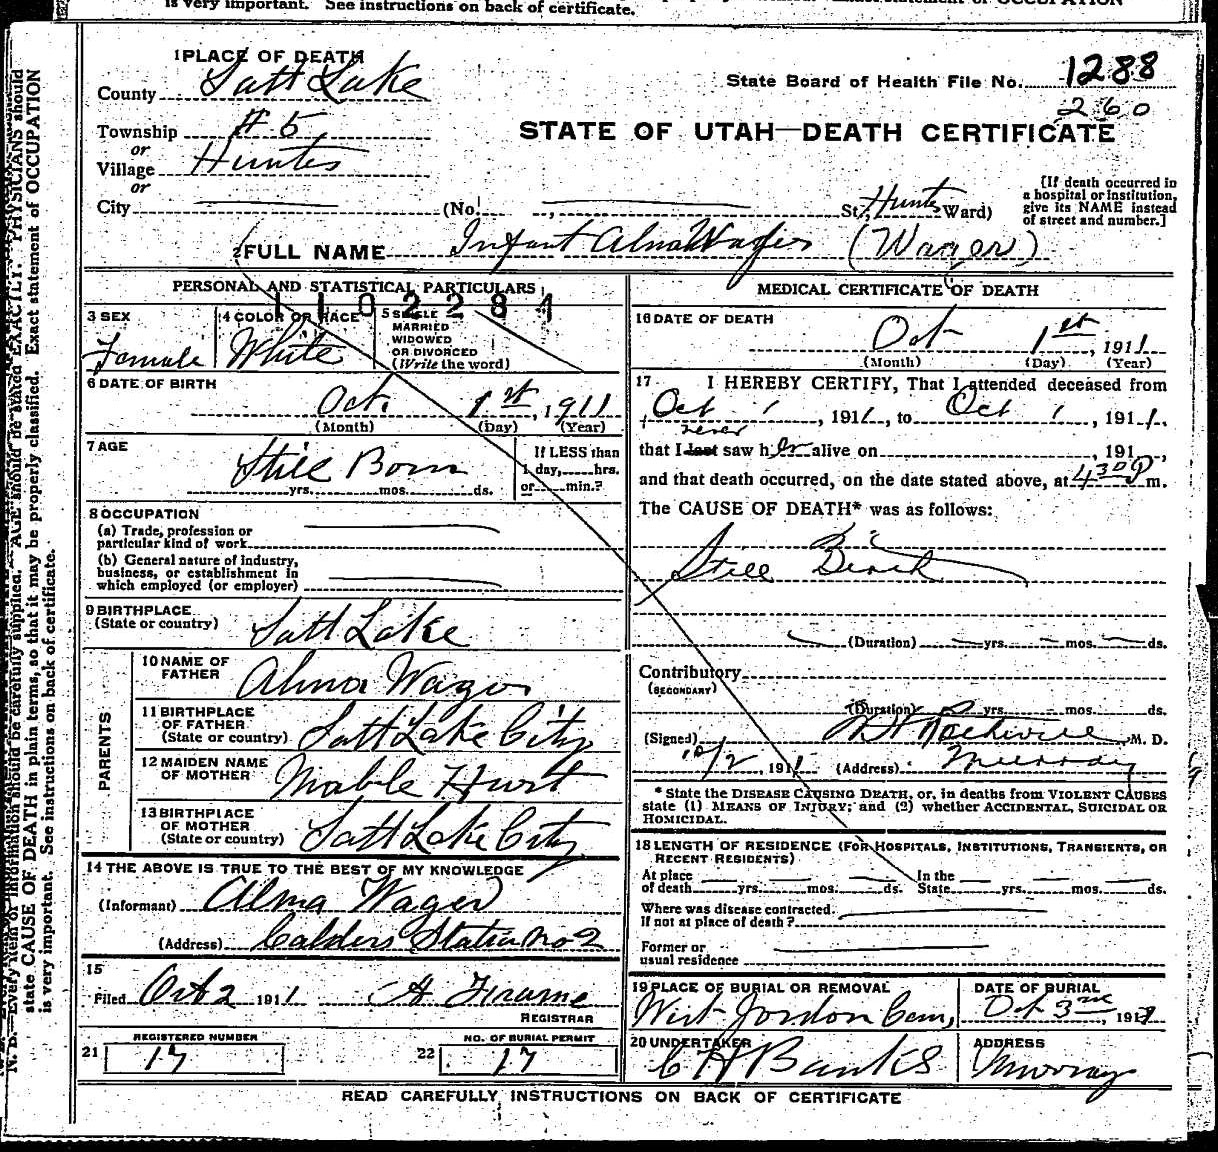 is very important. See instructions on back of certificate.
1 PLACE OF DEATH
County Salt Lake
State Board of Health File No. 1288
260
Township # 5
or
Village Hunter
or
City
STATE OF UTAH—DEATH CERTIFICATE
(No. , St., Hunter Ward)
[If death occurred in
a hospital or institution,
give its NAME instead
of street and number.]
2 FULL NAME Infant Alma Wager (Wager)
PERSONAL AND STATISTICAL PARTICULARS
1102284
3 SEX
Female
4 COLOR OR RACE
White
5 SINGLE
MARRIED
WIDOWED
OR DIVORCED
(Write the word)
6 DATE OF BIRTH
Oct. 1st, 1911
(Month) (Day) (Year)
7 AGE
Still Born
yrs. mos. ds.
If LESS than
1 day, hrs.
or min.?
8 OCCUPATION
(a) Trade, profession or
particular kind of work
(b) General nature of industry,
business, or establishment in
which employed (or employer)
9 BIRTHPLACE
(State or country)
Salt Lake
PARENTS
10 NAME OF
FATHER
Alma Wager
11 BIRTHPLACE
OF FATHER
(State or country)
Salt Lake City
12 MAIDEN NAME
OF MOTHER
Mable Hurst
13 BIRTHPLACE
OF MOTHER
(State or country)
Salt Lake City
14 THE ABOVE IS TRUE TO THE BEST OF MY KNOWLEDGE
(Informant) Alma Wager
(Address) Calders Station No 2
15
Filed Oct 2 1911 Frame
REGISTRAR
REGISTERED NUMBER
21 17
NO. OF BURIAL PERMIT
22 17
MEDICAL CERTIFICATE OF DEATH
16 DATE OF DEATH
Oct 1st, 1911
(Month) (Day) (Year)
17 I HEREBY CERTIFY, That I attended deceased from
Oct 1, 1911, to Oct 1, 1911,
never
that I last saw her alive on , 191 ,
and that death occurred, on the date stated above, at 430 P m.
The CAUSE OF DEATH* was as follows:
Still Birth
(Duration) yrs. mos. ds.
Contributory
(SECONDARY)
(Duration) yrs. mos. ds.
(Signed) Rockwell, M. D.
10/2, 1911 (Address) Murray
* State the DISEASE CAUSING DEATH, or, in deaths from VIOLENT CAUSES
state (1) MEANS OF INJURY; and (2) whether ACCIDENTAL, SUICIDAL OR
HOMICIDAL.
18 LENGTH OF RESIDENCE (FOR HOSPITALS, INSTITUTIONS, TRANSIENTS, OR
RECENT RESIDENTS)
At place
of death yrs. mos. ds.
In the
State yrs. mos. ds.
Where was disease contracted.
If not at place of death?
Former or
usual residence
19 PLACE OF BURIAL OR REMOVAL
West Jordon Cem,
DATE OF BURIAL
Oct 3rd, 1911
20 UNDERTAKER
C H Banks
ADDRESS
Murray
READ CAREFULLY INSTRUCTIONS ON BACK OF CERTIFICATE
N. B.—Every item of information should be carefully supplied. AGE should be stated EXACTLY. PHYSICIANS should
state CAUSE OF DEATH in plain terms, so that it may be properly classified. Exact statement of OCCUPATION
is very important. See instructions on back of certificate.